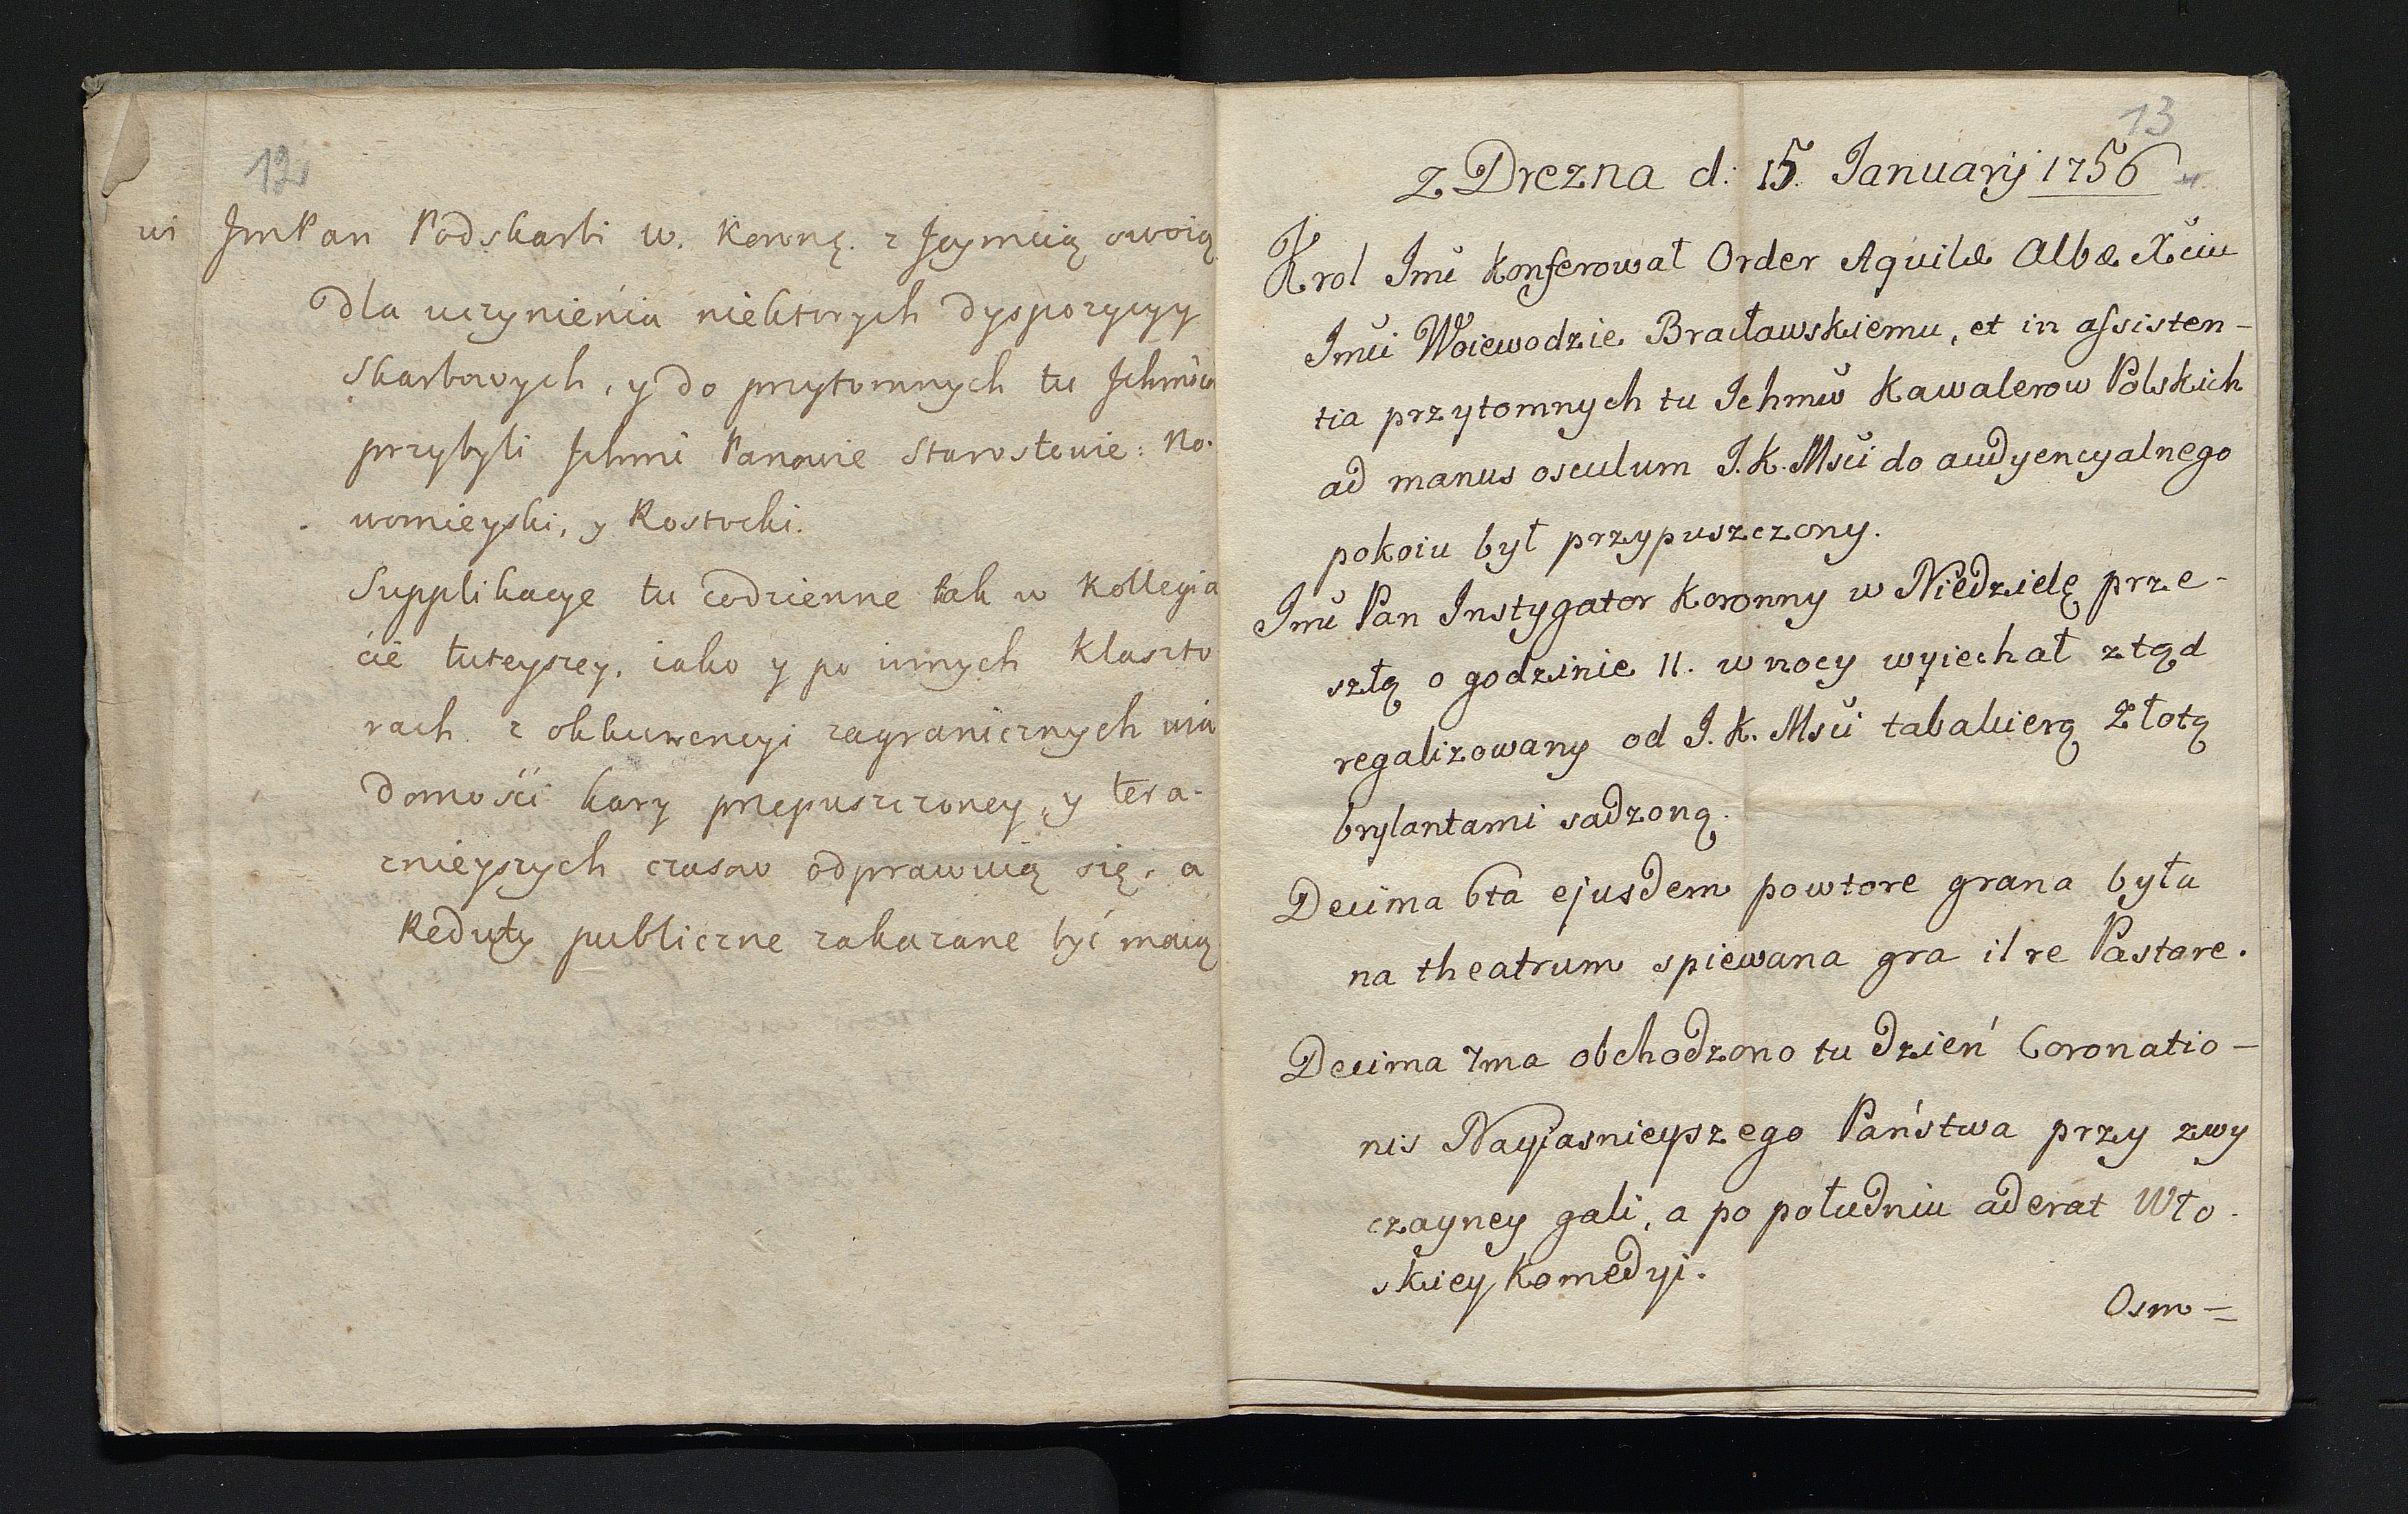 12
ui JmPan Podskarbi W. Koronę. z Jeymcią swoią
dla uczynienia niektorych dyspozycyy
Skarbowych, y do przytomnych tu Jchmćiow
przybyli Jchmć Panowie Starostowie: No-
womieyski, y Rostocki.
Supplikacye tu codzienne tak w Kollegia
cie tuteyszey, iako y po innych Klaszto
rach z okkurencyi zagranicznych wia
domośći kary przepuszczoney, y tera-
znieyszych czasow odprawuią się, a
Reduty publiczne zakazane być maią
13
Z Drezna d: 15. Januarij 1756
Krol Jmć konferował Order Aquilæ Albæ Xciu
Jmci Woiewodzie Bracławskiemu, et in assisten-
tia przytomnych tu Ichmw Kawalerow Polskich
ad manus osculum J.K. Msci do audyencyalnego
pokoiu był przypuszczony.
Jmć Pan Instygator Koronny w Niedzielę prze-
szłą o godzinie 11. w nocy wyiechał ztąd
regalizowany od J.K. Msci tabakierą złotą
brylantami sadzoną.
Decima 6ta ejusdem powtore grana była
na theatrum spiewana gra il re Pastare.
Decima 7ma obchodzono tu dzień Coronatio-
nis Nayiasnieyszego Państwa przy zwy
czayney gali, a po południu aderat Wło-
skiey Komedyi.
Osm=